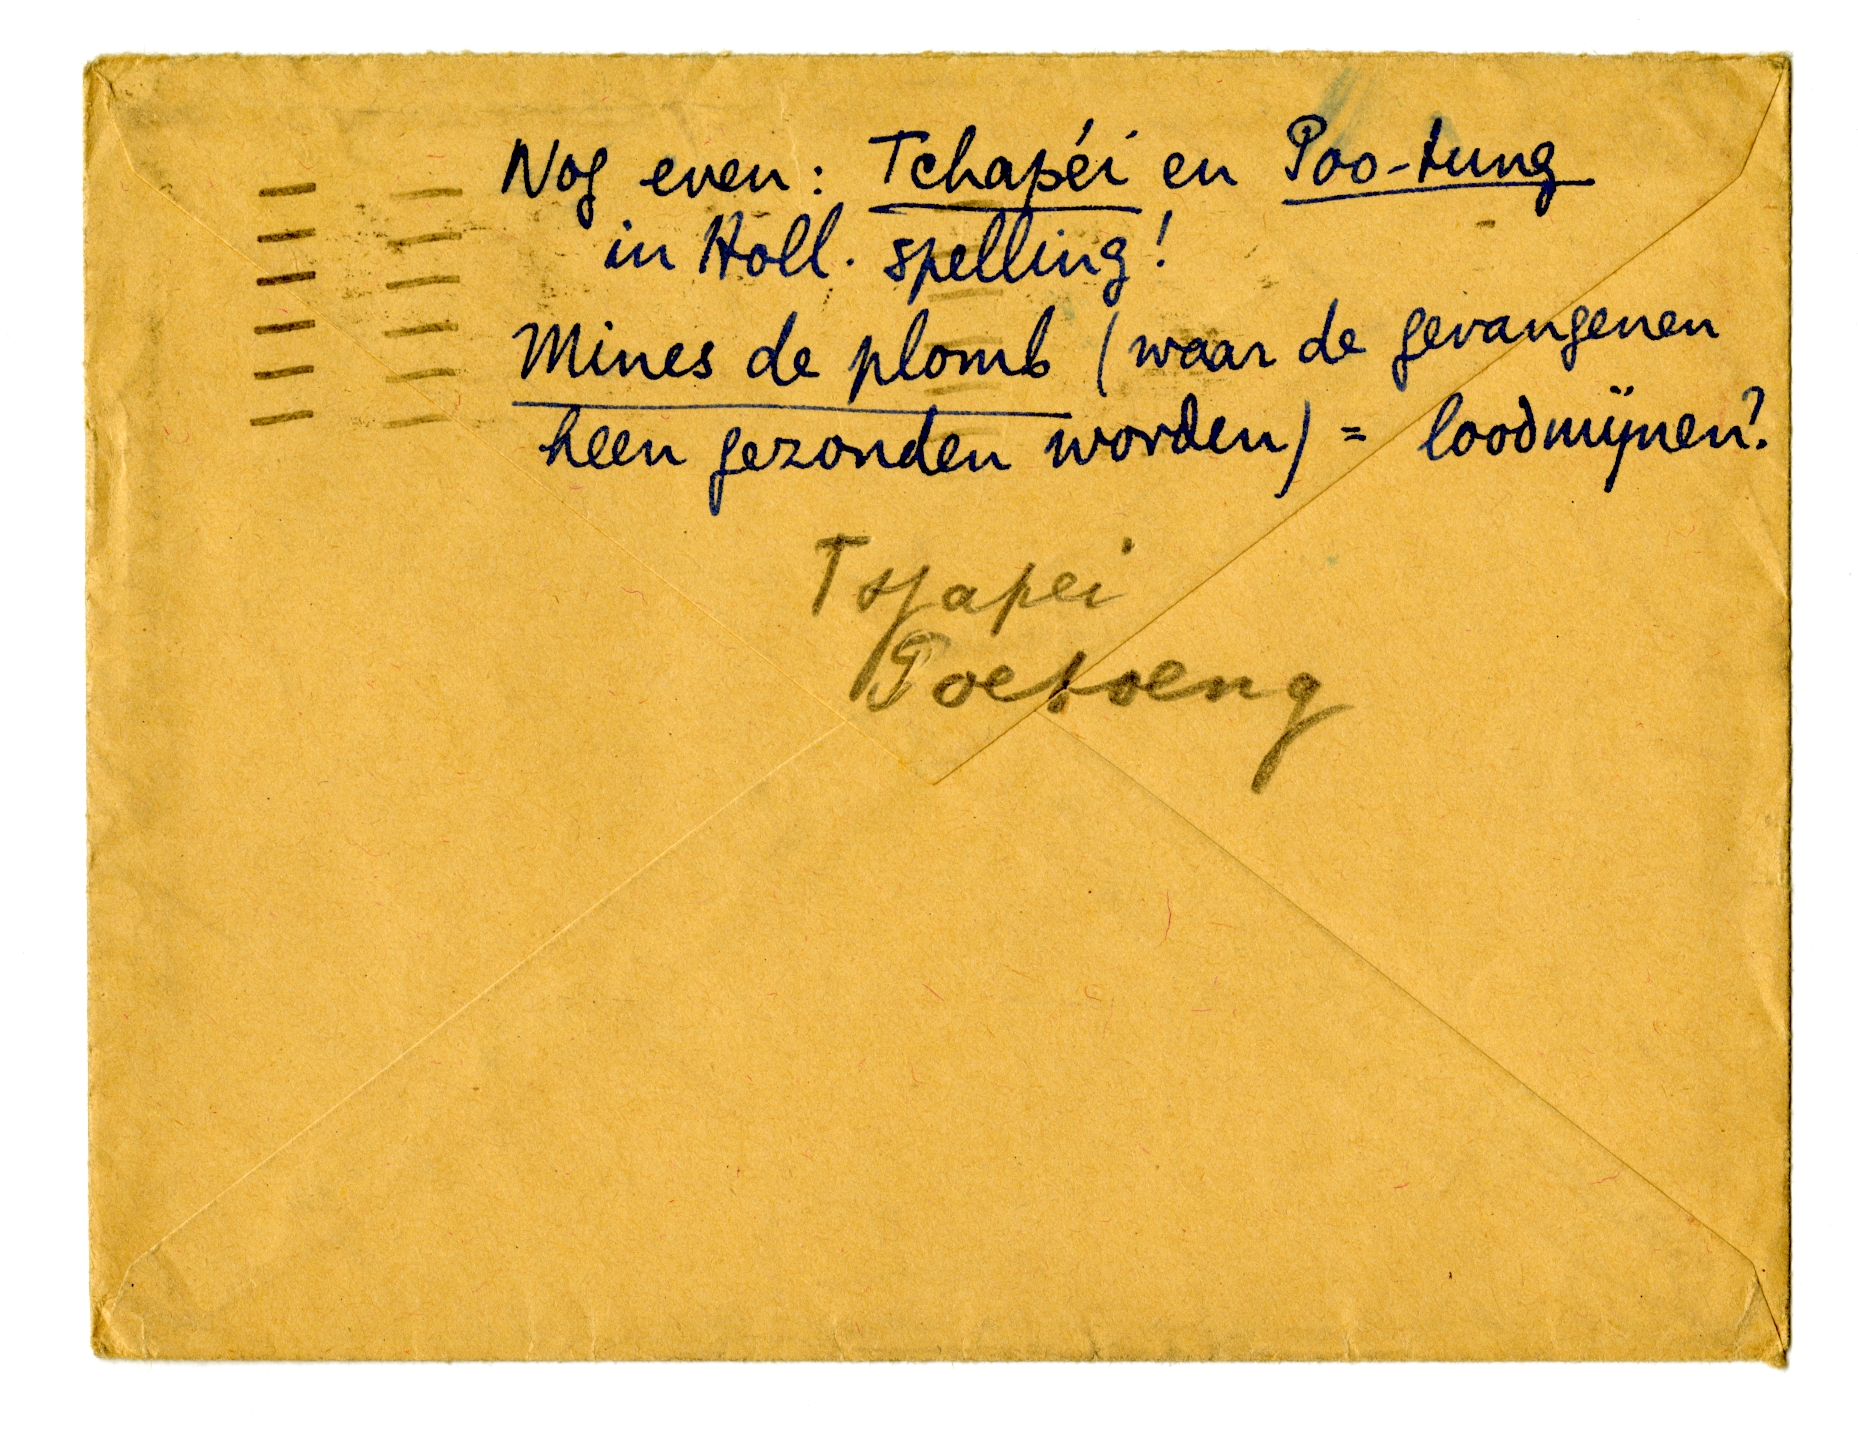 Nog even: Tchapéi en Poo-tung
in Holl. spelling!
Mines de plomb (waar de gevangenen
heen gezonden worden) = loodmijnen?
Tsjapei
Poetoeng